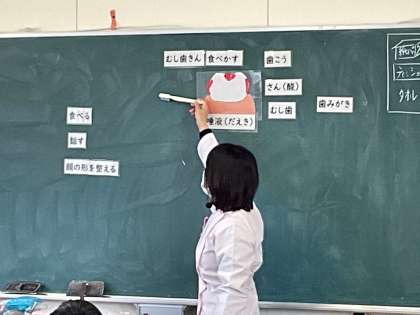 むし歯きん
食べかす
歯こう
さん(酸)
むし歯
歯みがき
唾液(だえき)
食べる
話す
顔の形を整える
ティッシュ
タオル